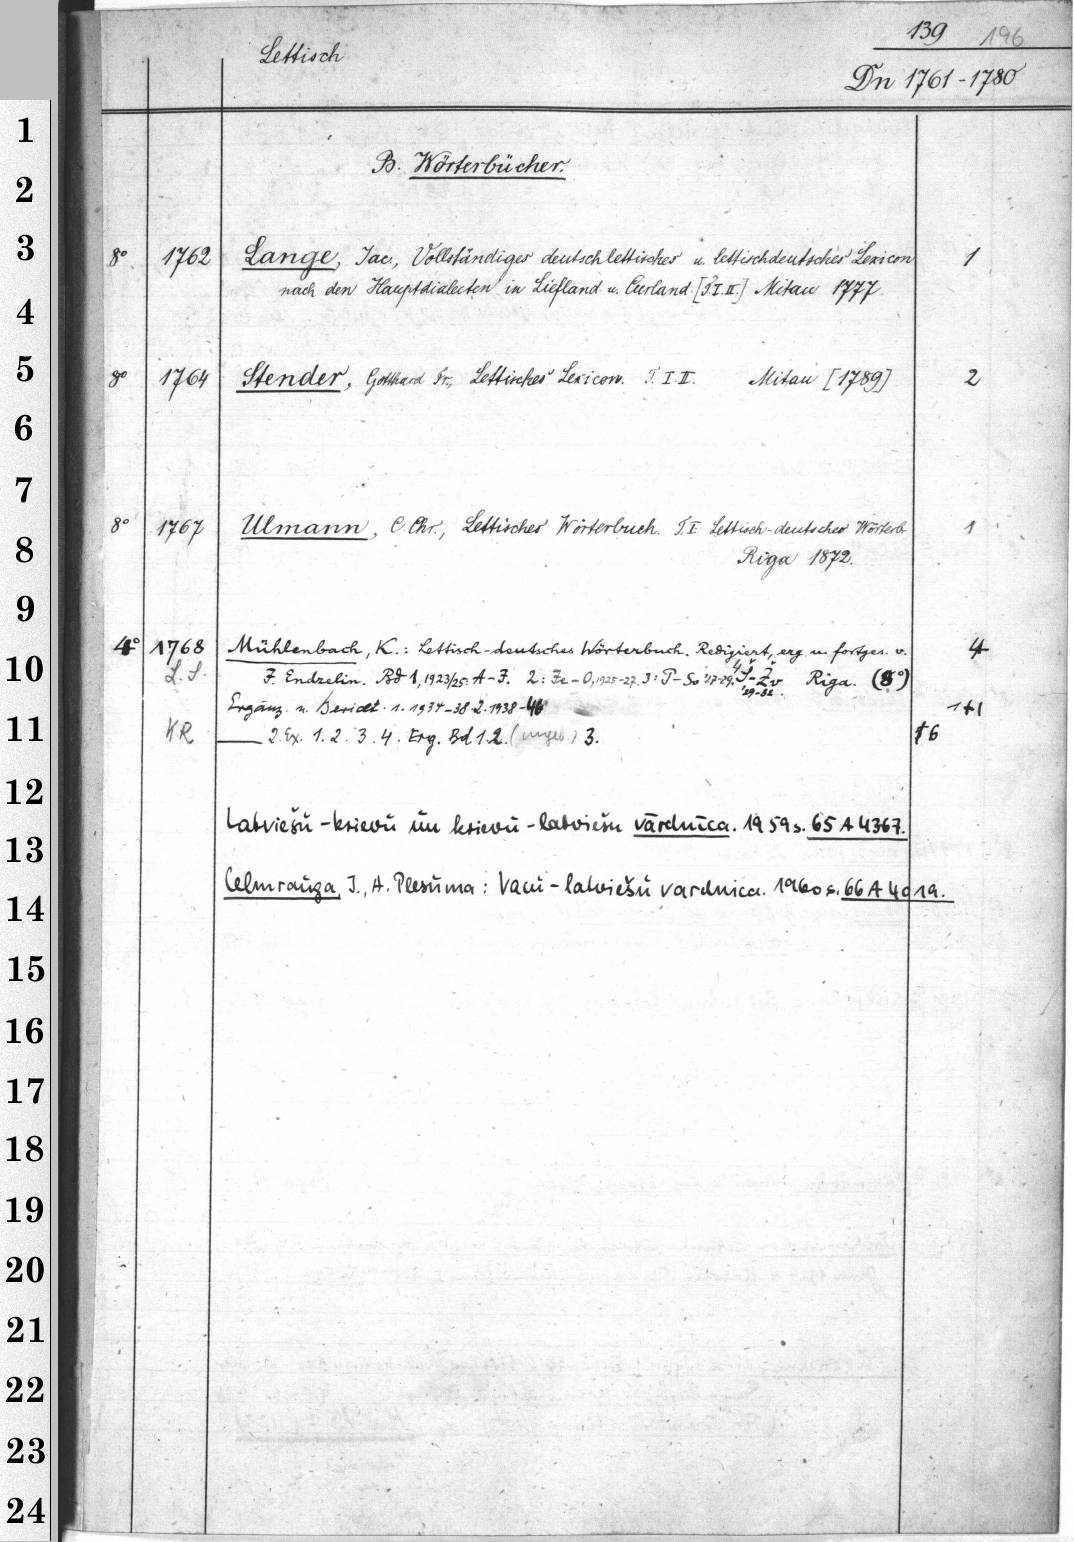 Lettisch
139 196
Dn 1761-1780
B. Wörterbücher.
8° 1762 Lange, Jac., Vollständiges deutschlettisches u. lettischdeutsches Lexicon 1
nach den Hauptdialecten in Liefland u. Curland. [T. I. II.] Mitau 1777.
8° 1764 Stender, Gotthard Fr., Lettisches Lexicon. T. I. II. Mitau [1789] 2
8° 1767 Ulmann, C. Chr., Lettisches Wörterbuch. T. I Lettisch-deutsches Wörterb. 1
Riga 1872.
4° 1768 Mühlenbach, K.: Lettisch-deutsches Wörterbuch. Redigiert, erg. u. fortges. v. 4
L.S. J. Endzelin. Bd 1, 1923/25: A-I. 2: Ie-O, 1925-27. 3: P-So '27-29. 4 Š-Žv '29-32. Riga. (8°)
Ergänz. u. Bericht. 1. 1934-38 2. 1938-46 1+1
KR — 2. Ex. 1. 2. 3. 4. Erg. Bd 1. 2. (ungeb.) 3. 6
Latviešu-krievu un krievu-latviešu vārdnīca. 1959 s. 65 A 4367.
Celmrauga, I., A. Plesuma: Vacu-latviešu vardnica. 1960 s. 66 A 4019.
1
2
3
4
5
6
7
8
9
10
11
12
13
14
15
16
17
18
19
20
21
22
23
24